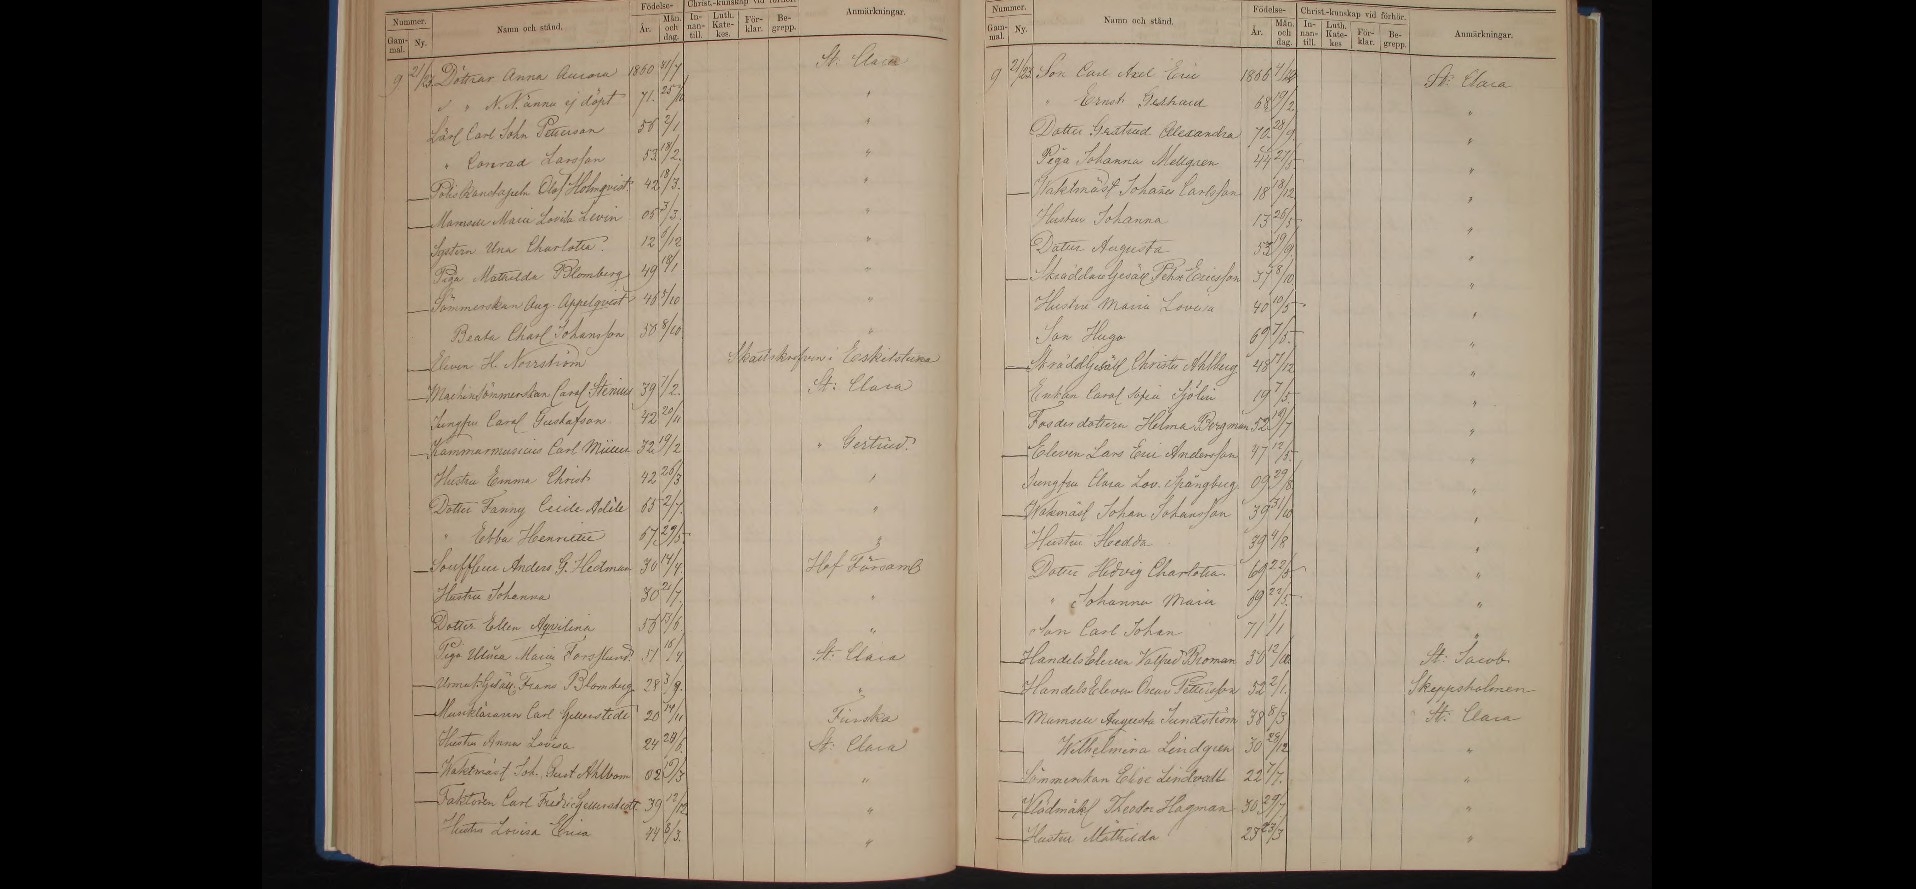 Nummer. Namn och stånd. Födelse- Christ.-kunskap vid förhör. Anmärkningar.
Gam-mal. Ny. År. Mån. och dag. In-nan-till. Luth. Kate-kes. För-klar. Be-grepp.
9 21/23 Dottrar Anna Aurora 1860 /7 St. Clara
" " N.N. ännu ej döpt 71. 25/ "
Carl John Petterson 56 2/1 "
" Conrad Larsson 53 18/2. "
Olof Holmqvist 42 18/3. "
Mamsell Maria Lovisa Levin 05 3/3. "
Systern Una Charlotta 12 /12 "
Piga Mathilda Blomberg 49 18/1 "
Sömmerskan Aug. Appelqvist 45 /10 "
Beata Charl. Johansson 38 8/10 "
Eleven H. Norrström Skall skrefven i Eskilstuna
Machinsömmerskan Carol. 39 7/2. St: Clara
Jungfru Carol. Gustafson 42 20/11
Kammarmusicus Carl Müller 32 19/2 " Gertrud.
Hustru Emma Christ. 42 26/3 "
Dotter Fanny Cecile Adèle 65 2/7. "
" Ebba Henriette 67 29/5 "
Souffleur Anders G. Hedman 30 14/4. Hof Församl
Hustru Johanna 30 21/7. "
Dotter Ellen Aqvilina 56 13/6 "
Piga Maria Forslund. 51 18/4 St. Clara
Frans Blomberg 28 3/9. "
Carl Gellerstedt 20 14/11 Finska
Hustru Anna Lovisa 24 29/6. St: Clara
Waktmäst Joh. Gust Ahlbom 02 19/3 "
Faktoren Carl Fredric Gellerstedt 39 12/12 "
Hustru Lovisa Erica 44 6/3. "
Nummer. Namn och stånd. Födelse- Christ.-kunskap vid förhör. Anmärkningar.
Gam-mal. Ny. År. Mån. och dag. In-nan-till. Luth. Kate-kes För-klar. Be-grepp.
9 21/23 Son Carl Axel Eric 1866 St: Clara
" Ernst Gerhard 68 19/2 "
Dotter Gertrud Alexandra 70 28/9 "
Piga Johanna Mellgren 44 27/5 "
Waktmäst Johanes Carlsson 18 18/12 "
Hustru Johanna 13 26/5 "
Dotter Augusta 53 19/9 "
Skräddare Gesäll Pehr Ericsson 37 8/10 "
Hustru Maria Lovisa 40 10/5 "
Son Hugo 69 7/5 "
Skrädd Gesäll Christer Ahlberg 48 17/12 "
Enkan Carol. Sofia Sjölin 19 7/5. "
Fosterdottern Helma Bergman 52 19/7 "
Eleven Lars Eric Andersson 47 12/5. "
Jungfru Clara Lov. Spångberg 09 29/8 "
Wakmäst Johan Johansson 39 31/10 "
Hustru Hedda 39 4/8 "
Dotter Hedvig Charlotta 69 22/5 "
" Johanna Maria 69 22/5. "
Son Carl Johan 71 1/1 "
Handels Eleven Valfrid Broman 12/ St: Jacob
Handels Eleven Oscar Pettersson 52 2/1. Skeppsholmen
Mamsell Augusta Sundström 38 8/3 St: Clara
Wilhelmina Lindgren 30 29/12 "
Sömmerskan Lindvall 22 7/7. "
Theodor Hagman 30 29/7 "
Hustru Mathilda 23 23/3 "